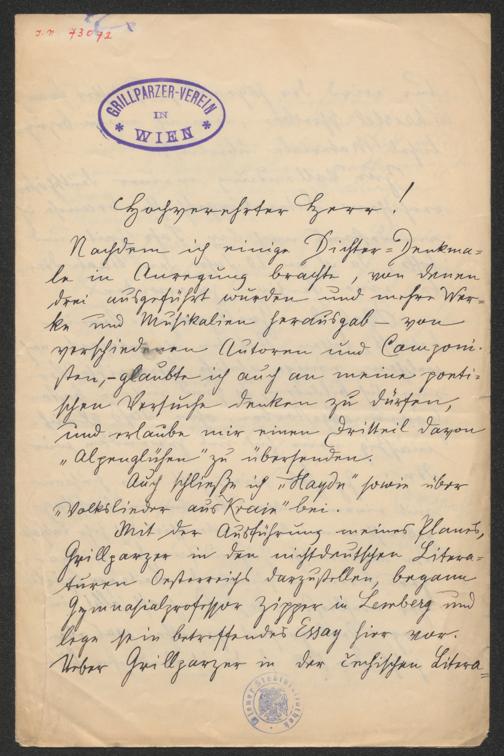 J.N. 73072
GRILLPARZER-VEREIN
IN
* WIEN *
Hochverehrter Herr!
Nachdem ich einige Dichter=Denkma=
le in Anregung brachte, von denen
drei ausgeführt wurden und mehre Wer=
ke und Musikalien herausgab – von
verschiedenen Autoren und Componi=
sten, – glaubte ich auch an meine poeti=
schen Versuche denken zu dürfen,
und erlaube mir einen Dritteil davon
„Alpenglühen" zu übersenden.
Auch schließe ich „Haydn" sowie über
„Volkslieder aus Krain" bei.
Mit der Ausführung meines Planes,
Grillparzer in den nichtdeutschen Litera=
turen Oesterreichs darzustellen, begann
Gymnasialprofessor Zipper in Lemberg und
lege sein betreffendes Essay hier vor.
Ueber Grillparzer in der čechischen Litera=